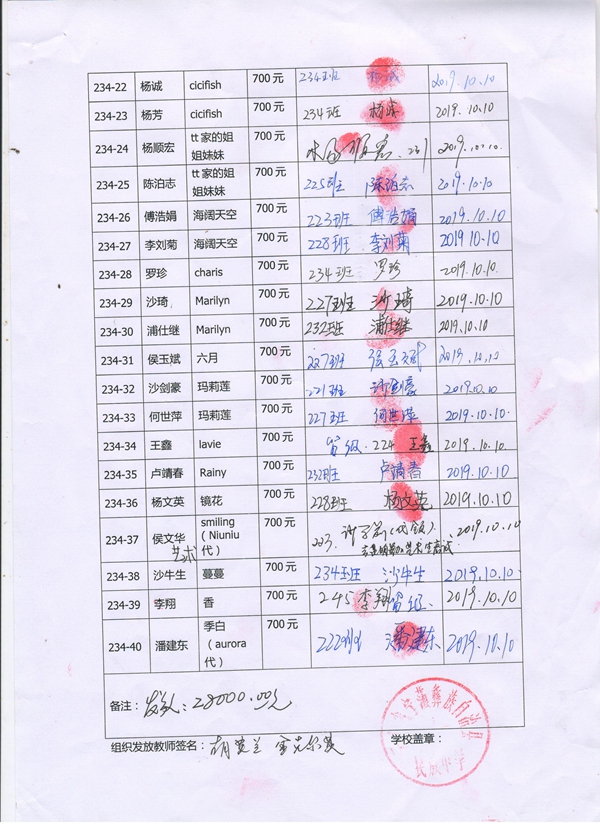 234-22 杨诚 cicifish 700元 234班 杨诚 2019.10.10
234-23 杨芳 cicifish 700元 234班 2019.10.10
234-24 杨顺宏 tt家的姐
姐妹妹 700元 2019.10.10
234-25 陈泊志 tt家的姐
姐妹妹 700元 225班 陈泊志 2019.10.10
234-26 傅浩娟 海阔天空 700元 223班 傅浩娟 2019.10.10
234-27 李刘菊 海阔天空 700元 228班 李刘菊 2019 10-10
234-28 罗珍 charis 700元 234班 罗珍 2019.10.10.
234-29 沙琦 Marilyn 700元 227班 沙琦 2019.10.10
234-30 浦仕继 Marilyn 700元 232班 浦仕继 2019.10.10
234-31 侯玉斌 六月 700元 227班 2019.10.10
234-32 沙剑豪 玛莉莲 700元 221班 沙剑豪 2019.10.10
234-33 何世萍 玛莉莲 700元 227班 何世萍 2019.10.10.
234-34 王鑫 lavie 700元 224 王鑫 2019.10.10.
234-35 卢靖春 Rainy 700元 232班 卢靖春 2019.10.10
234-36 杨文英 镜花 700元 228班 杨文英 2019.10.10
234-37 侯文华 艺术 smiling
(Niuniu
代) 700元 203. 2019.10.10
234-38 沙牛生 蔓蔓 700元 234班 沙牛生 2019.10.10
234-39 李翔 香 700元 245 李翔 2019.10.10
234-40 潘建东 季白
(aurora
代) 700元 222 潘建东 2019.10.10
备注: 28000.00元
组织发放教师签名: 学校盖章:
彝族自治县
民族中学